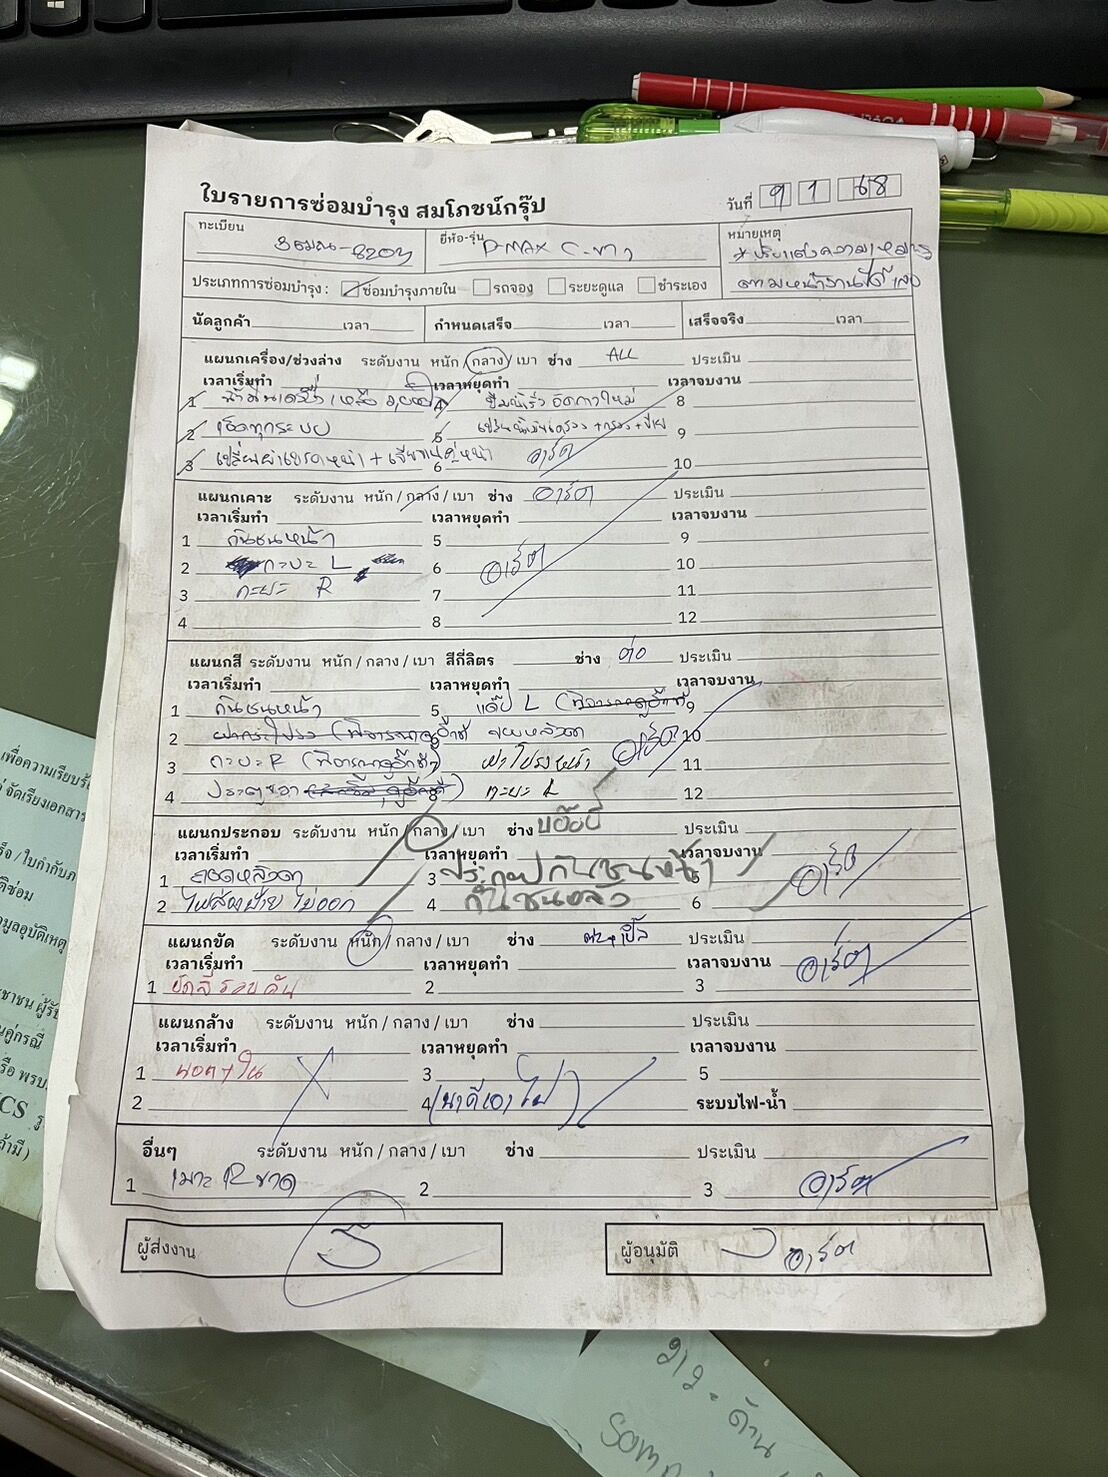 ใบรายการซ่อมบำรุง สมโภชน์กรุ๊ป
วันที่ 9 1 68
ทะเบียน
ยี่ห้อ-รุ่น D-MAX C-ขาว
หมายเหตุ
* ปรับแต่งความเหมาะ
ตามหน้างานได้เลย
ประเภทการซ่อมบำรุง : ซ่อมบำรุงภายใน รถจอง ระยะดูแล ชำระเอง
นัดลูกค้า เวลา กำหนดเสร็จ เวลา เสร็จจริง เวลา
แผนกเครื่อง/ช่วงล่าง ระดับงาน หนัก / กลาง / เบา ช่าง ALL ประเมิน
เวลาเริ่มทำ เวลาหยุดทำ เวลาจบงาน
1 4 8
2 เช็คทุกระบบ 5 เปลี่ยนน้ำมันเครื่อง + กรอง 9
3 เปลี่ยนผ้าเบรคหน้า + เจียรจานคู่หน้า 6 อาร์ต 10
แผนกเคาะ ระดับงาน หนัก / กลาง / เบา ช่าง อาร์ต ประเมิน
เวลาเริ่มทำ เวลาหยุดทำ เวลาจบงาน
1 กันชนหน้า 5 9
2 กะบะ L 6 อาร์ต 10
3 กะบะ R 7 11
4 8 12
แผนกสี ระดับงาน หนัก / กลาง / เบา สีกี่ลิตร ช่าง ต่อ ประเมิน
เวลาเริ่มทำ เวลาหยุดทำ เวลาจบงาน
1 กันชนหน้า 5 แค๊ป L 9
2 ฝากระโปรง 10
3 กะบะ R ฝาโปรงหน้า อาร์ต 11
4 ประตูขวา 8 กะบะ L 12
แผนกประกอบ ระดับงาน หนัก / กลาง / เบา ช่าง ประเมิน
เวลาเริ่มทำ เวลาหยุดทำ เวลาจบงาน
1 3 ประกบกันชนหน้า อาร์ต
2 ไฟส่องป้าย ไม่ออก 4 กันชนหลัง 6
แผนกขัด ระดับงาน หนัก / กลาง / เบา ช่าง ประเมิน
เวลาเริ่มทำ เวลาหยุดทำ เวลาจบงาน อาร์ต
1 ขัดสีรอบคัน 2 3
แผนกล้าง ระดับงาน หนัก / กลาง / เบา ช่าง ประเมิน
เวลาเริ่มทำ เวลาหยุดทำ เวลาจบงาน
1 นอก + ใน 3 5
2 4 ระบบไฟ-น้ำ
อื่นๆ ระดับงาน หนัก / กลาง / เบา ช่าง ประเมิน
1 เบาะ R ขาด 2 3 อาร์ต
ผู้ส่งงาน
ผู้อนุมัติ อาร์ต
เพื่อความเรียบร้
จัดเรียงเอกสาร
ร็จ / ใบกำกับภ
ติซ่อม
อมูลอุบัติเหตุ
ชาชน ผู้รับ
นคู่กรณี
รือ พรบ
CS รู
ถ้ามี)